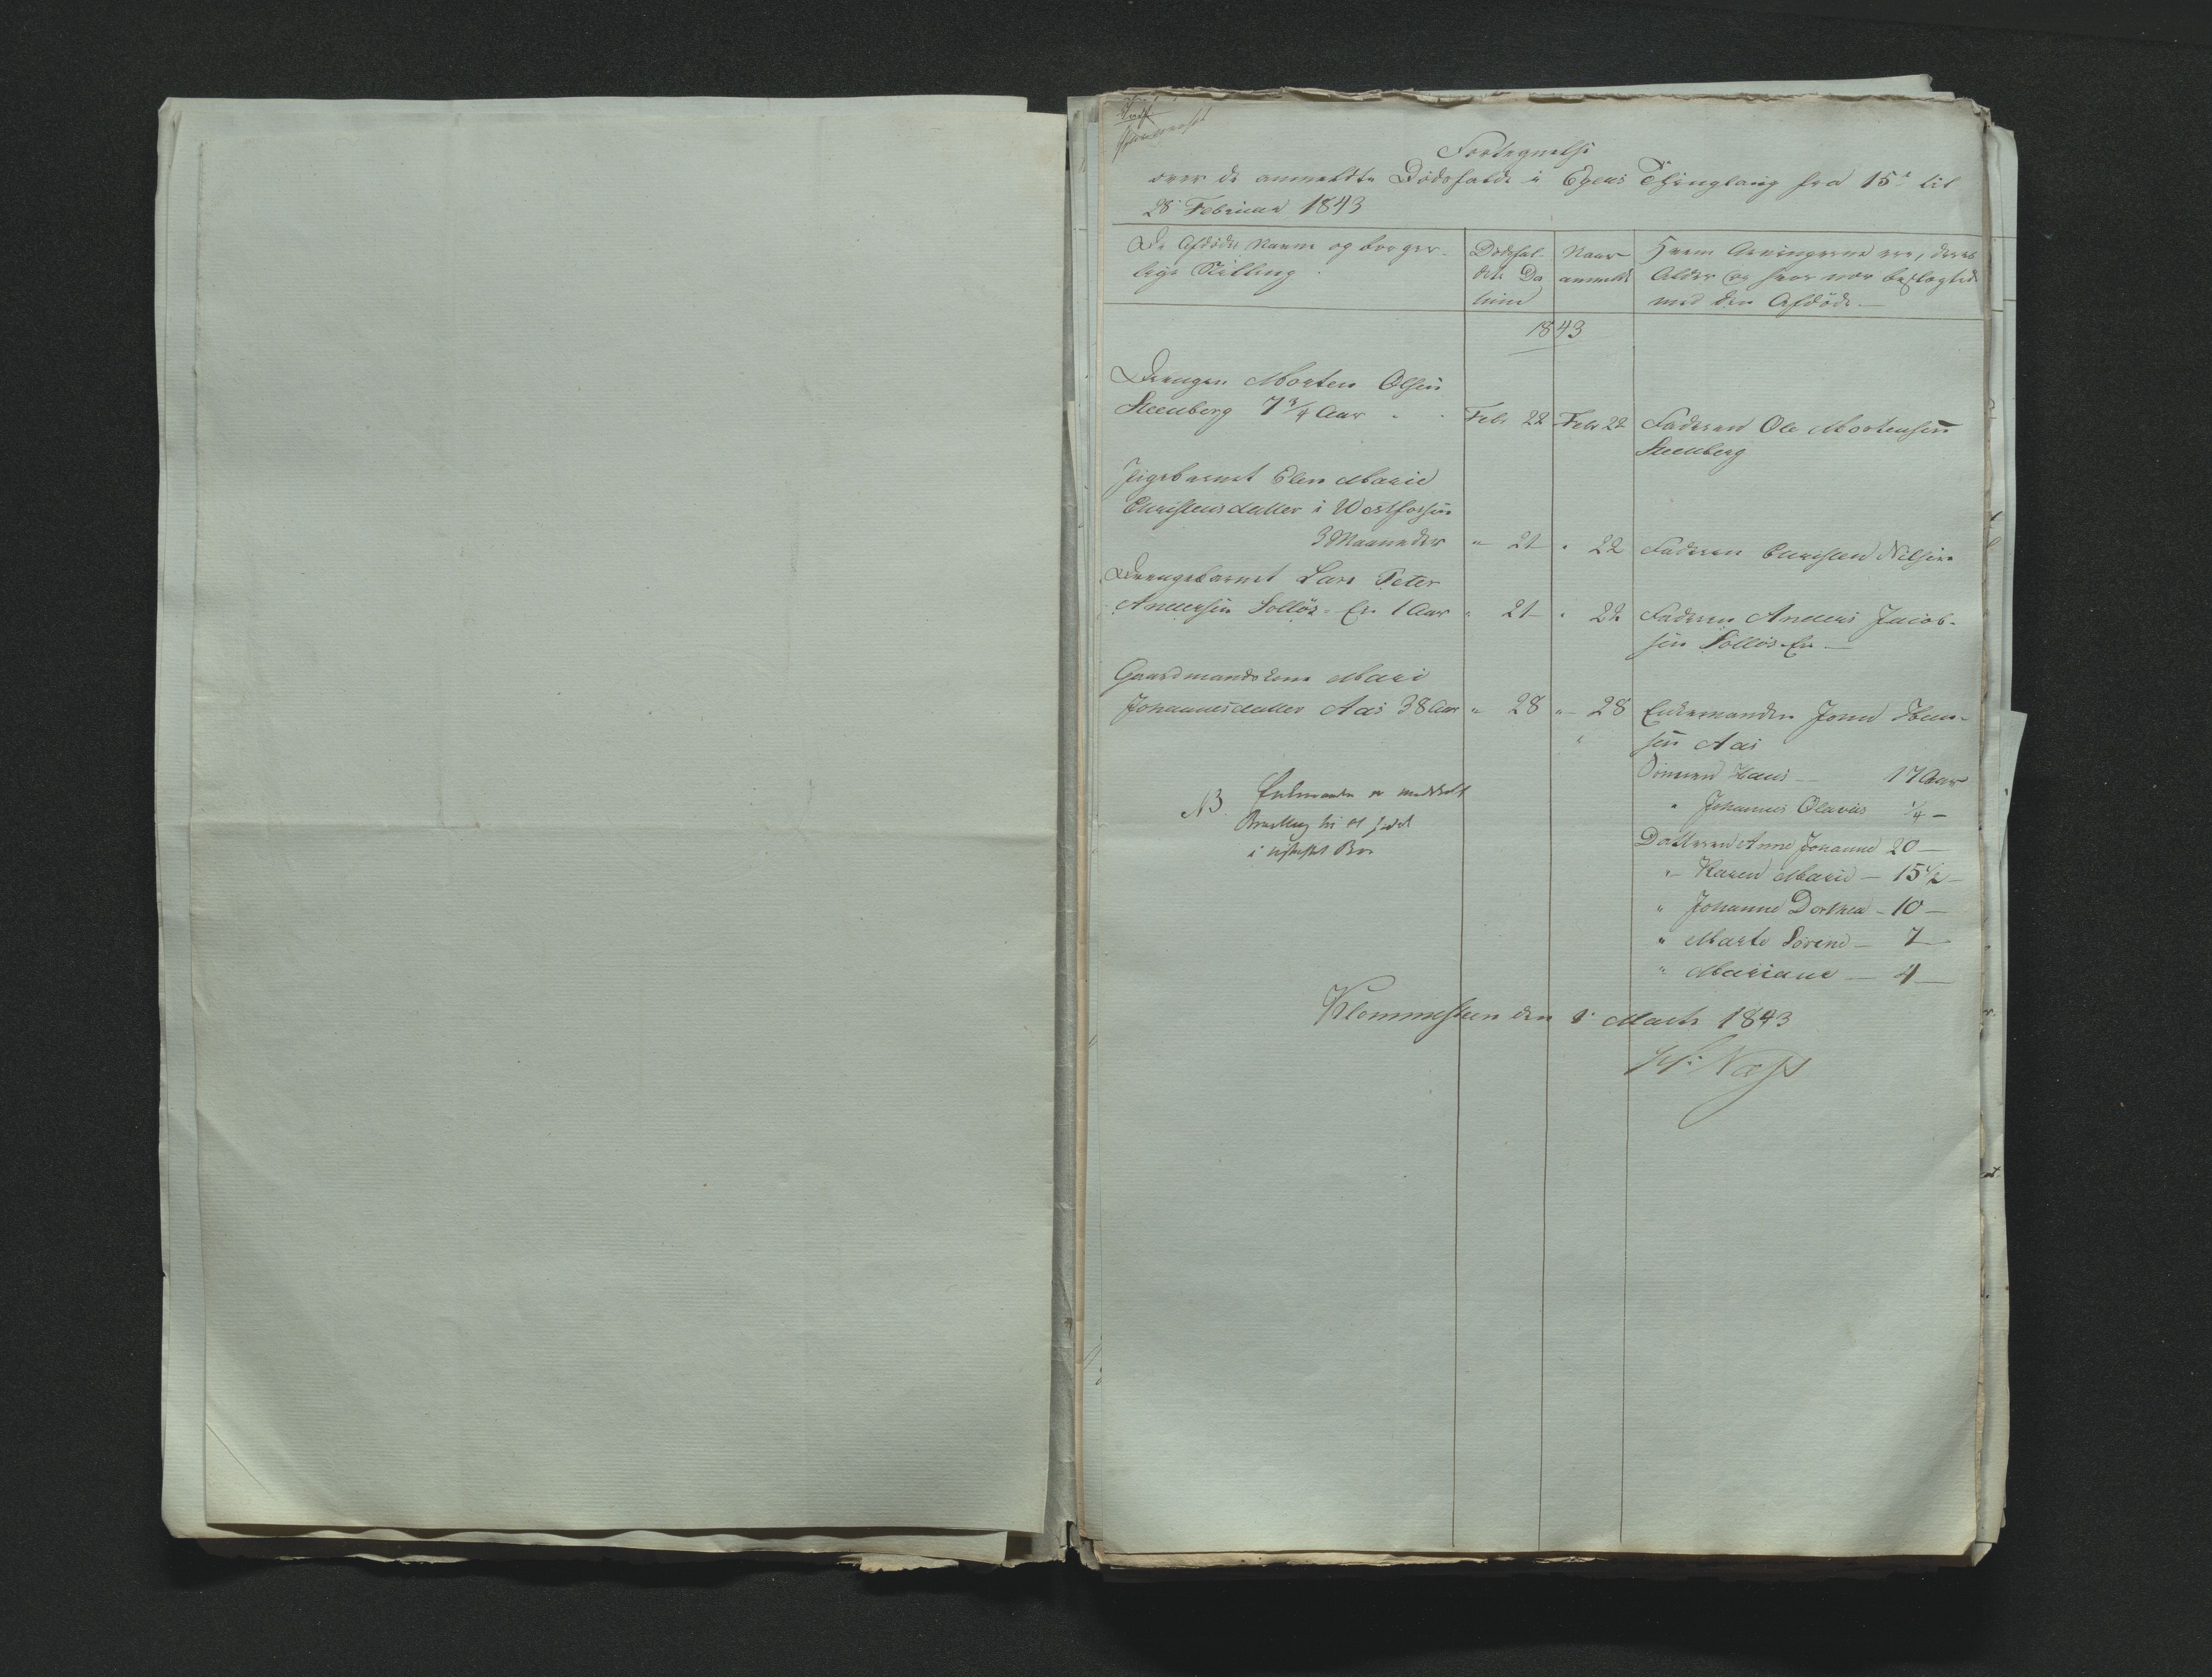 Fortegnelse
over de anmeldte Dødsfalde i Egers Thinglaug fra 15de til
28 Februar 1843
De Afdødes Navne og borger-
lige Stilling
Dødsfal-
dets Da
tum
Naar
anmeldt
Hvem Arvingerne ere, deres
Alder og hvor nær beslægtede
med den Afdøde.—
1843
Drengen Morten Olsen
Steenberg 7 3/4 Aar
Febr 22
Febr 22
Faderen Ole Mortensen
Steenberg
Pigebarnet Elen Marie
Christensdatter i Westfossen
3 Maaneder
" 21
" 22
Faderen Christen Nilsen
Drengebarnet Lars Peter
Andersen Solløs-Eie 1 Aar
" 21
" 22
Faderen Anders Jacob-
sen Solløs-Eie —
Gaardmandskone Mari
Johannesdatter Aas 38 Aar
" 28
" 28
Enkemanden Jonn Han-
sen Aas
Sønnen Hans — 17 Aar
" Johannes Olavus 1/4 —
Datteren Anne Johanne 20 —
" Karen Marie — 15 1/2 —
" Johanne Dorthea — 10 —
" Marte Sørine — 7 —
" Mariane — 4 —
NB. Enkemanden er meddeelt
Bevilling til at sidde
i uskiftet Bo
Klommesteen den 1 Marts 1843
Næss